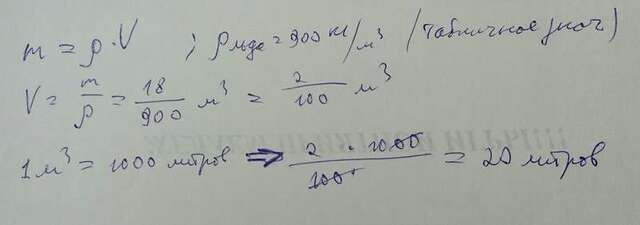 m = ρ · V ; ρ льда = 900 кг/м³ (табличное знач)
V = m/ρ = 18/900 м³ = 2/100 м³
1 м³ = 1000 литров ⇒ 2 · 1000/100 = 20 литров